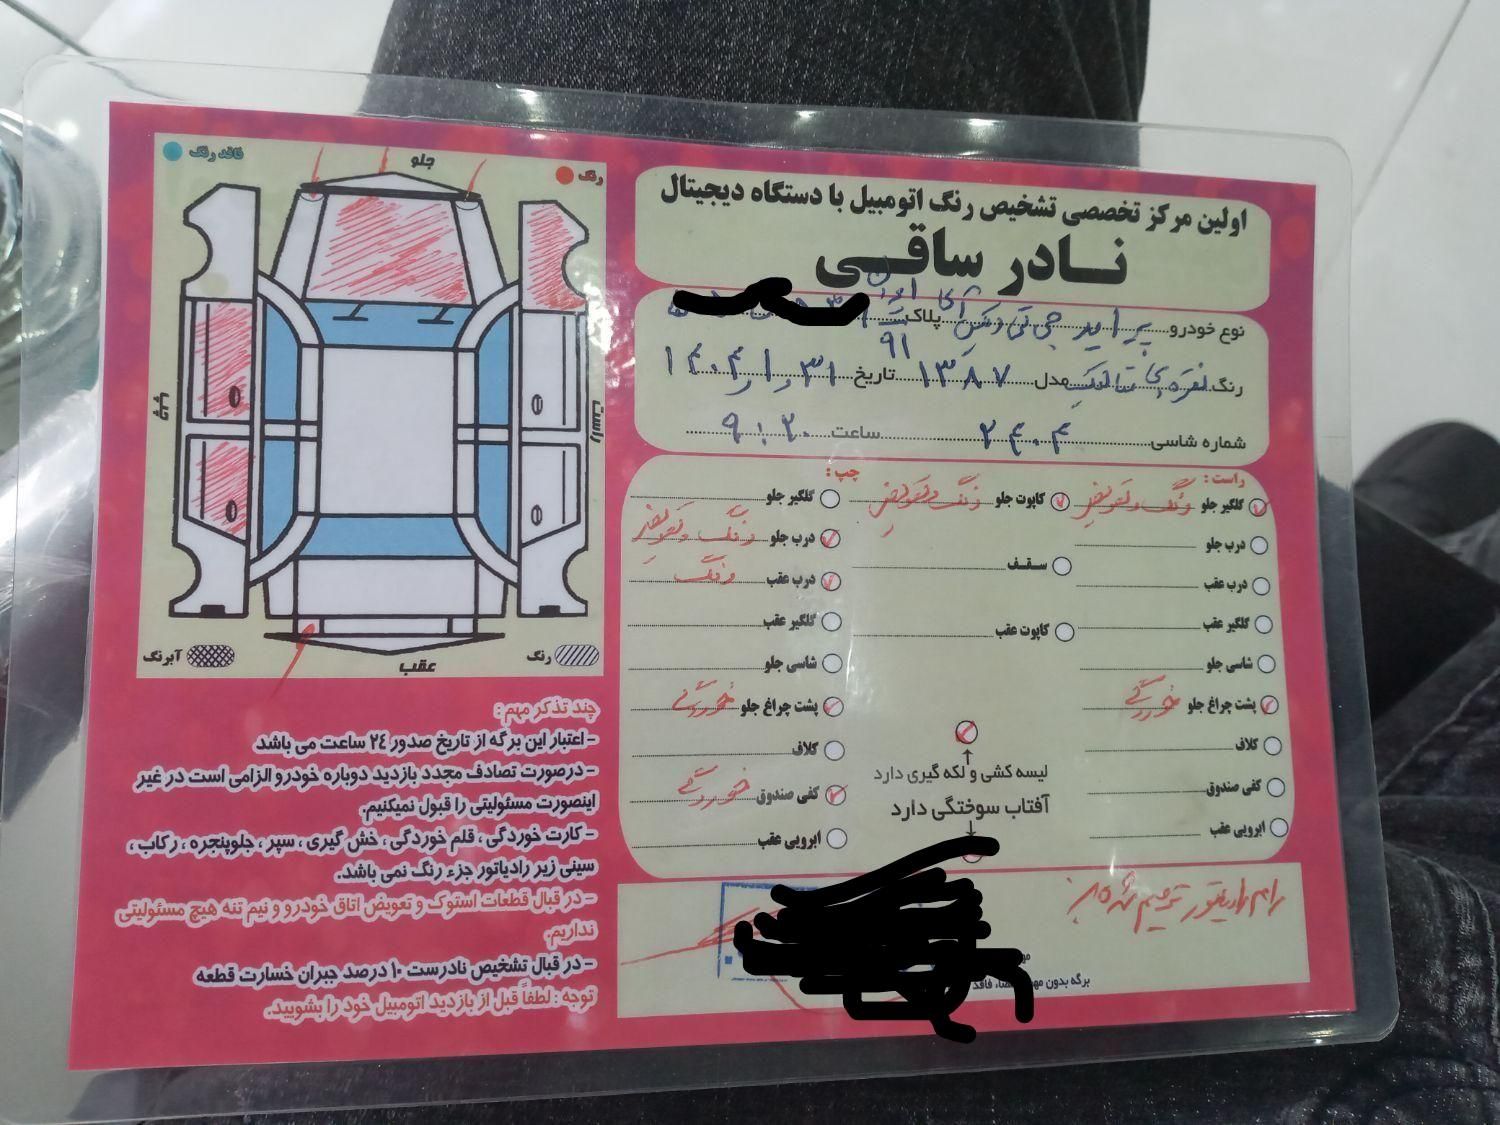 فاقد رنگ
رنگ
جلو
چپ
راست
عقب
آبرنگ
رنگ
اولین مرکز تخصصی تشخیص رنگ اتومبیل با دستگاه دیجیتال
نــادر ساقــی
نوع خودرو پراید جی تی ایکس آی پلاک ایران ۹۱
رنگ نقره ای متالیک مدل ۱۳۸۷ تاریخ ۱۴۰۴/۱/۳۱
شماره شاسی ۲۴۰۴ ساعت ۹:۲۰
راست :
گلگیر جلو رنگ و تعویض
درب جلو
درب عقب
گلگیر عقب
شاسی جلو
پشت چراغ جلو خوردگی
کلاف
کفی صندوق
ابرویی عقب
کاپوت جلو رنگ و تعویض
سـقـف
کاپوت عقب
لیسه کشی و لکه گیری دارد
آفتاب سوختگی دارد
چپ :
گلگیر جلو
درب جلو رنگ و تعویض
درب عقب رنگ
گلگیر عقب
شاسی جلو
پشت چراغ جلو خوردگی
کلاف
کفی صندوق خوردگی
ابرویی عقب
رام رادیاتور ترمیم شده
برگه بدون مهر
فاقد
چند تذکر مهم :
- اعتبار این برگه از تاریخ صدور ٢٤ ساعت می باشد
- درصورت تصادف مجدد بازدید دوباره خودرو الزامی است در غیر
اینصورت مسئولیتی را قبول نمیکنیم.
- کارت خوردگی ، قلم خوردگی ، خش گیری ، سپر ، جلوپنجره ، رکاب ،
سینی زیر رادیاتور جزء رنگ نمی باشد.
- در قبال قطعات استوک و تعویض اتاق خودرو و نیم تنه هیچ مسئولیتی
نداریم.
- در قبال تشخیص نادرست ١٠ درصد جبران خسارت قطعه
توجه : لطفاً قبل از بازدید اتومبیل خود را بشویید.